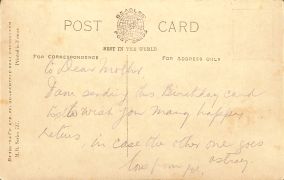 POST CARD
BEAGLES
POST CARDS
BEST IN THE WORLD
FOR CORRESPONDENCE
FOR ADDRESS ONLY
to Dear Mother
I am sending this Birthday card
to wish you many happy
returns in case the other one goes
astray.
love from
Printed in